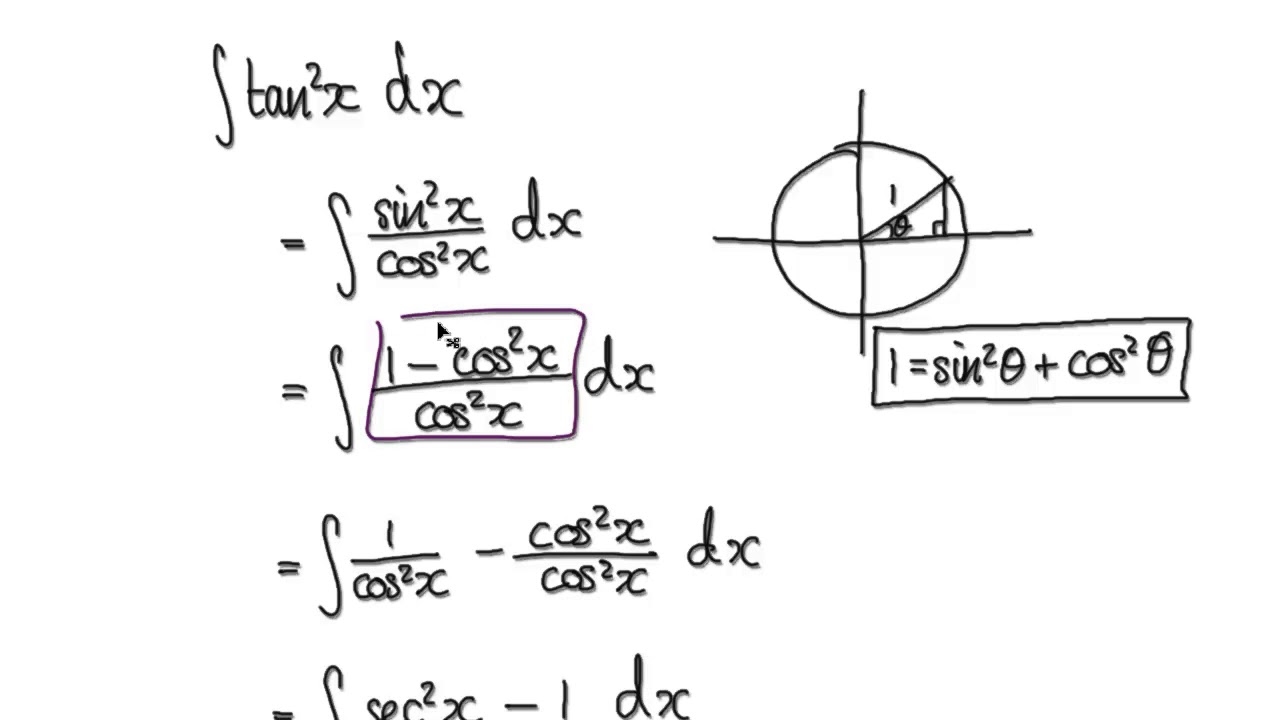 ∫ tan²x dx
= ∫ sin²x / cos²x dx
1
θ
= ∫ (1 − cos²x) / cos²x dx
1 = sin²θ + cos²θ
= ∫ 1 / cos²x − cos²x / cos²x dx
= ∫ sec²x − 1 dx